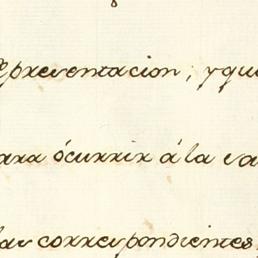 epresentacion; y que
ara ócurrir á la va
las correspondientes,